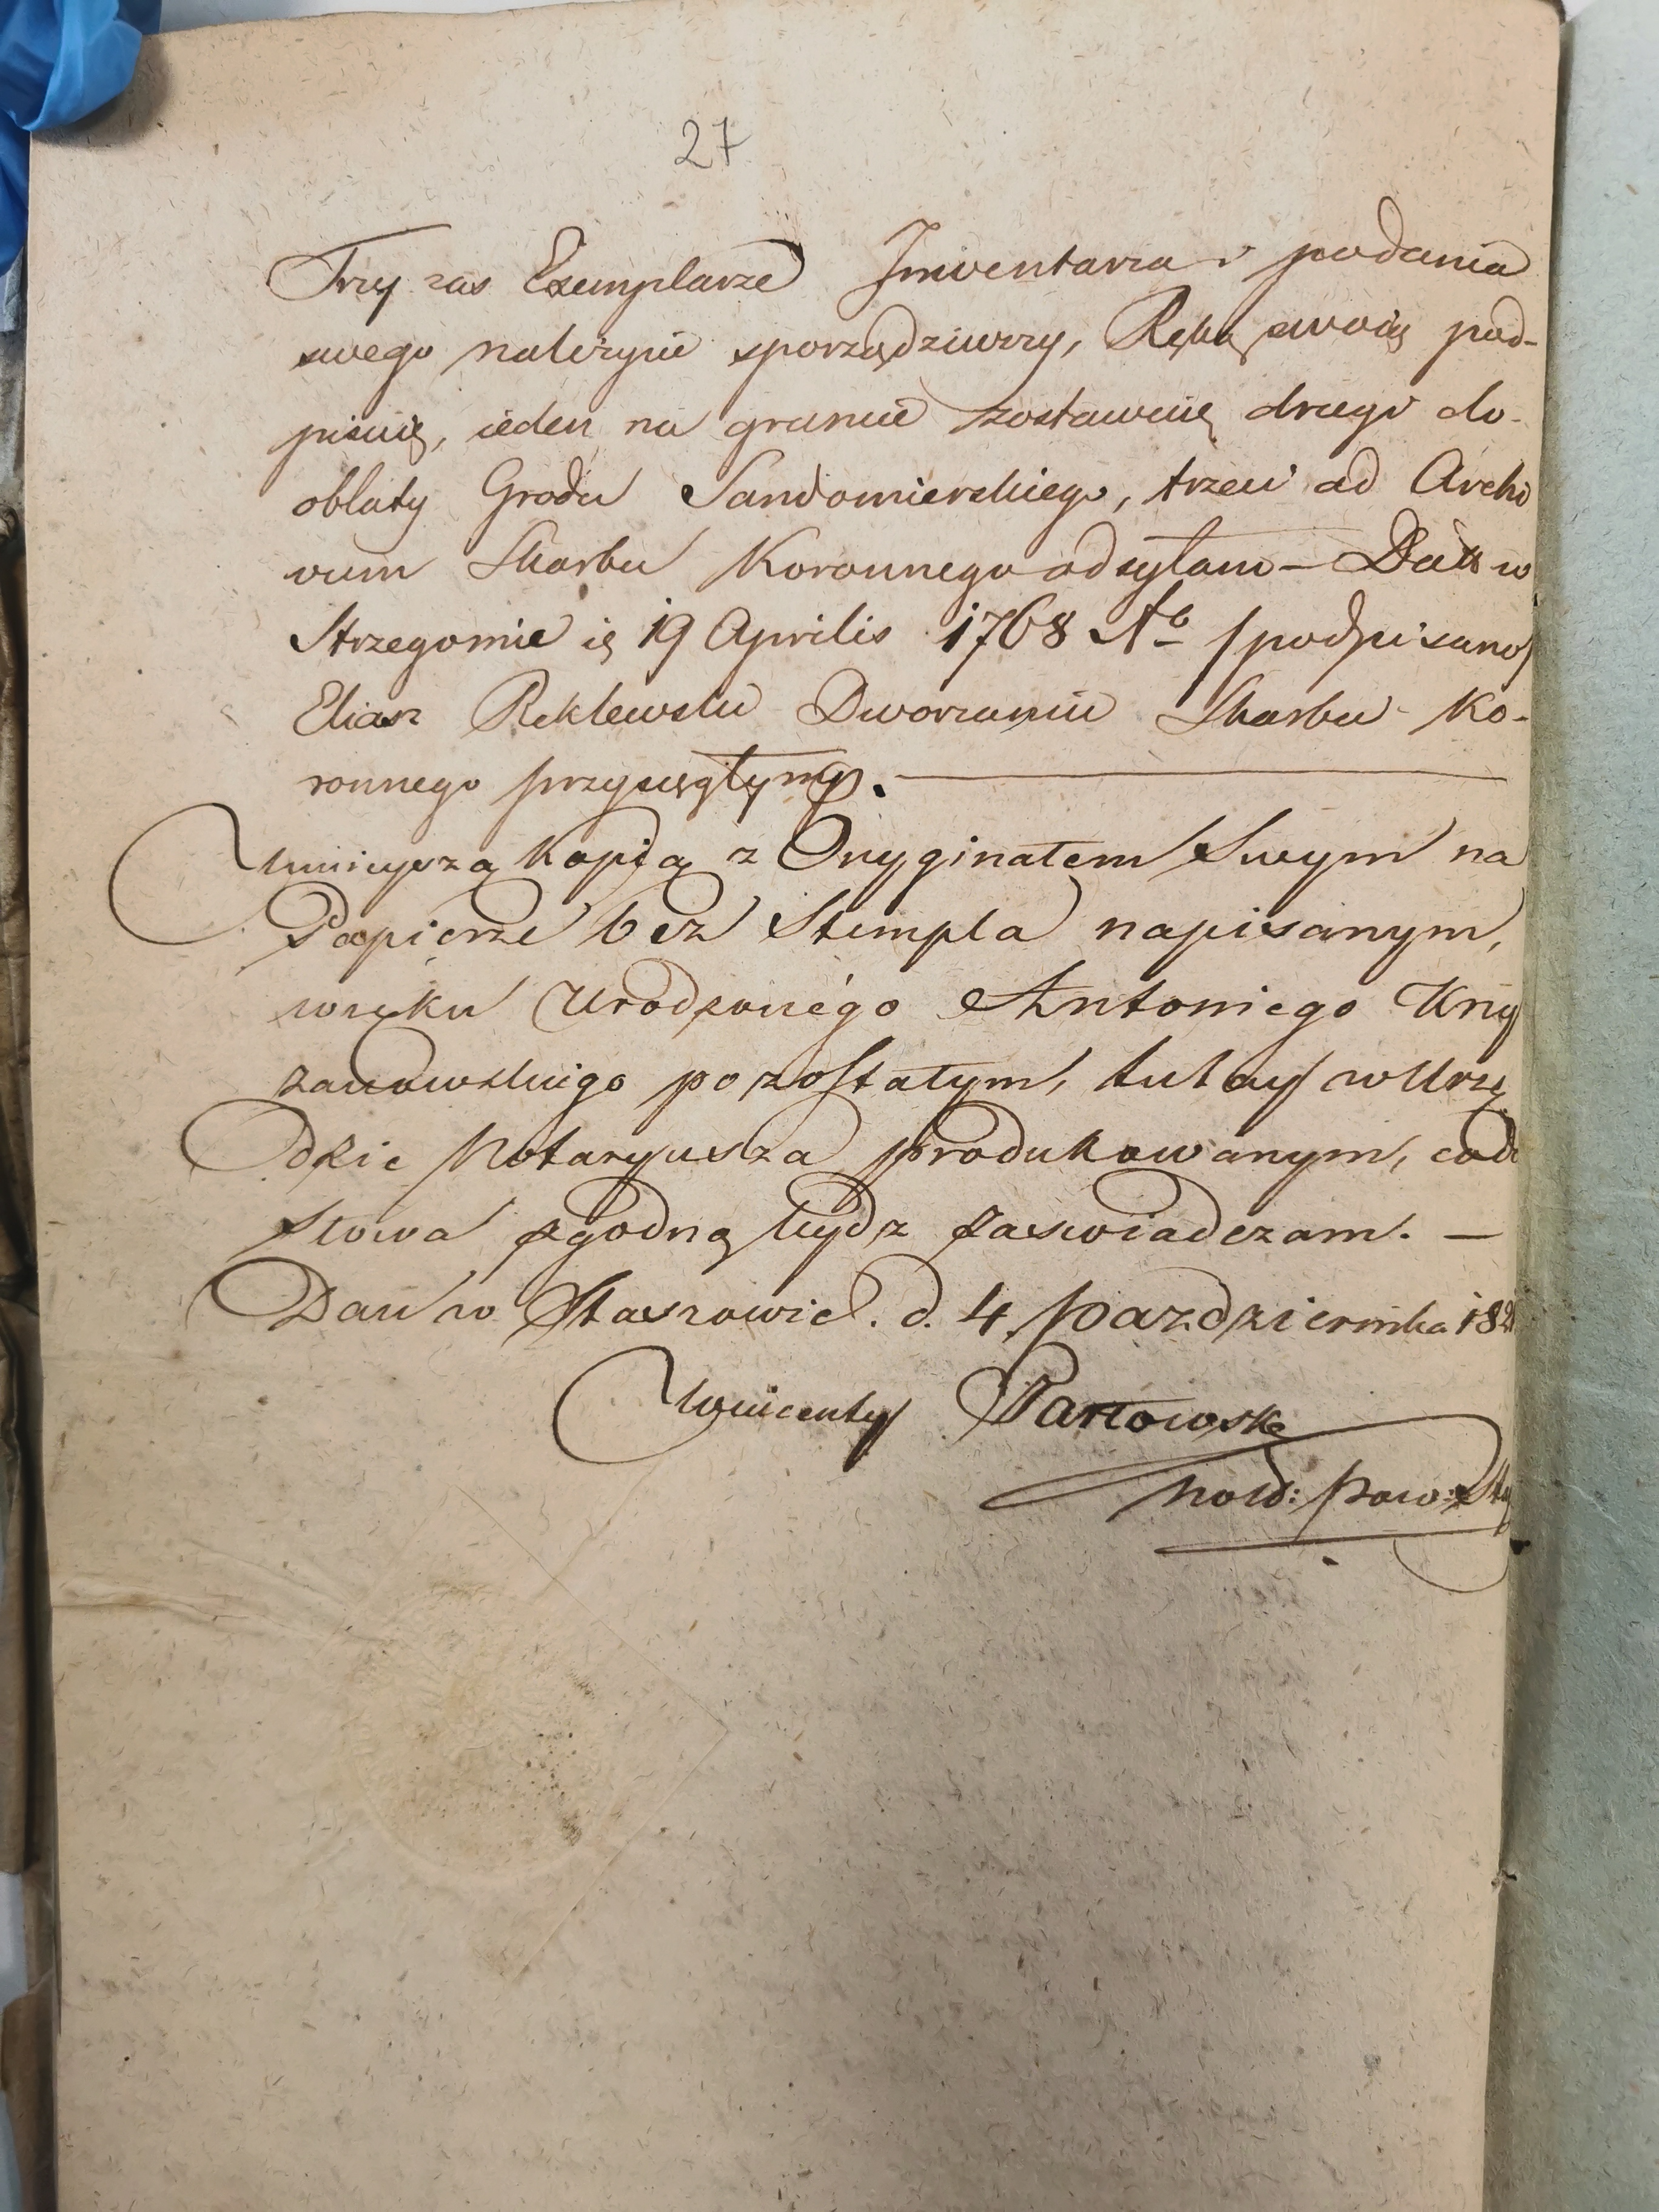 27
Trzy zas Exemplarze Inwentarza i podania
swego należycie sporządziwszy, Ręką swoią pod-
pisuię, ieden na gruncie zostawuię drugi do
oblaty Grodu Sandomierskiego, trzeci ad Archi
vum Skarbu Koronnego odsyłam — Datt w
Strzegomie 19 Aprilis 1768 Ao /podpisano/
Eliasz Reklewski Dworzanin Skarbu Ko-
ronnego przysięgłym.
Ninieyszą Kopią z Oryginałem Swym na
Papierze bez Stempla napisanym,
w ręku Urodzonego Antoniego Krzy
zanowskiego pozostałym, tutay w Urzę
dzie Notaryusza produkowanym, co do
słowa zgodną bydz zaswiadczam. —
Dan w Staszowie. d. 4 Pazdziernika 18
Wincenty
Pow: